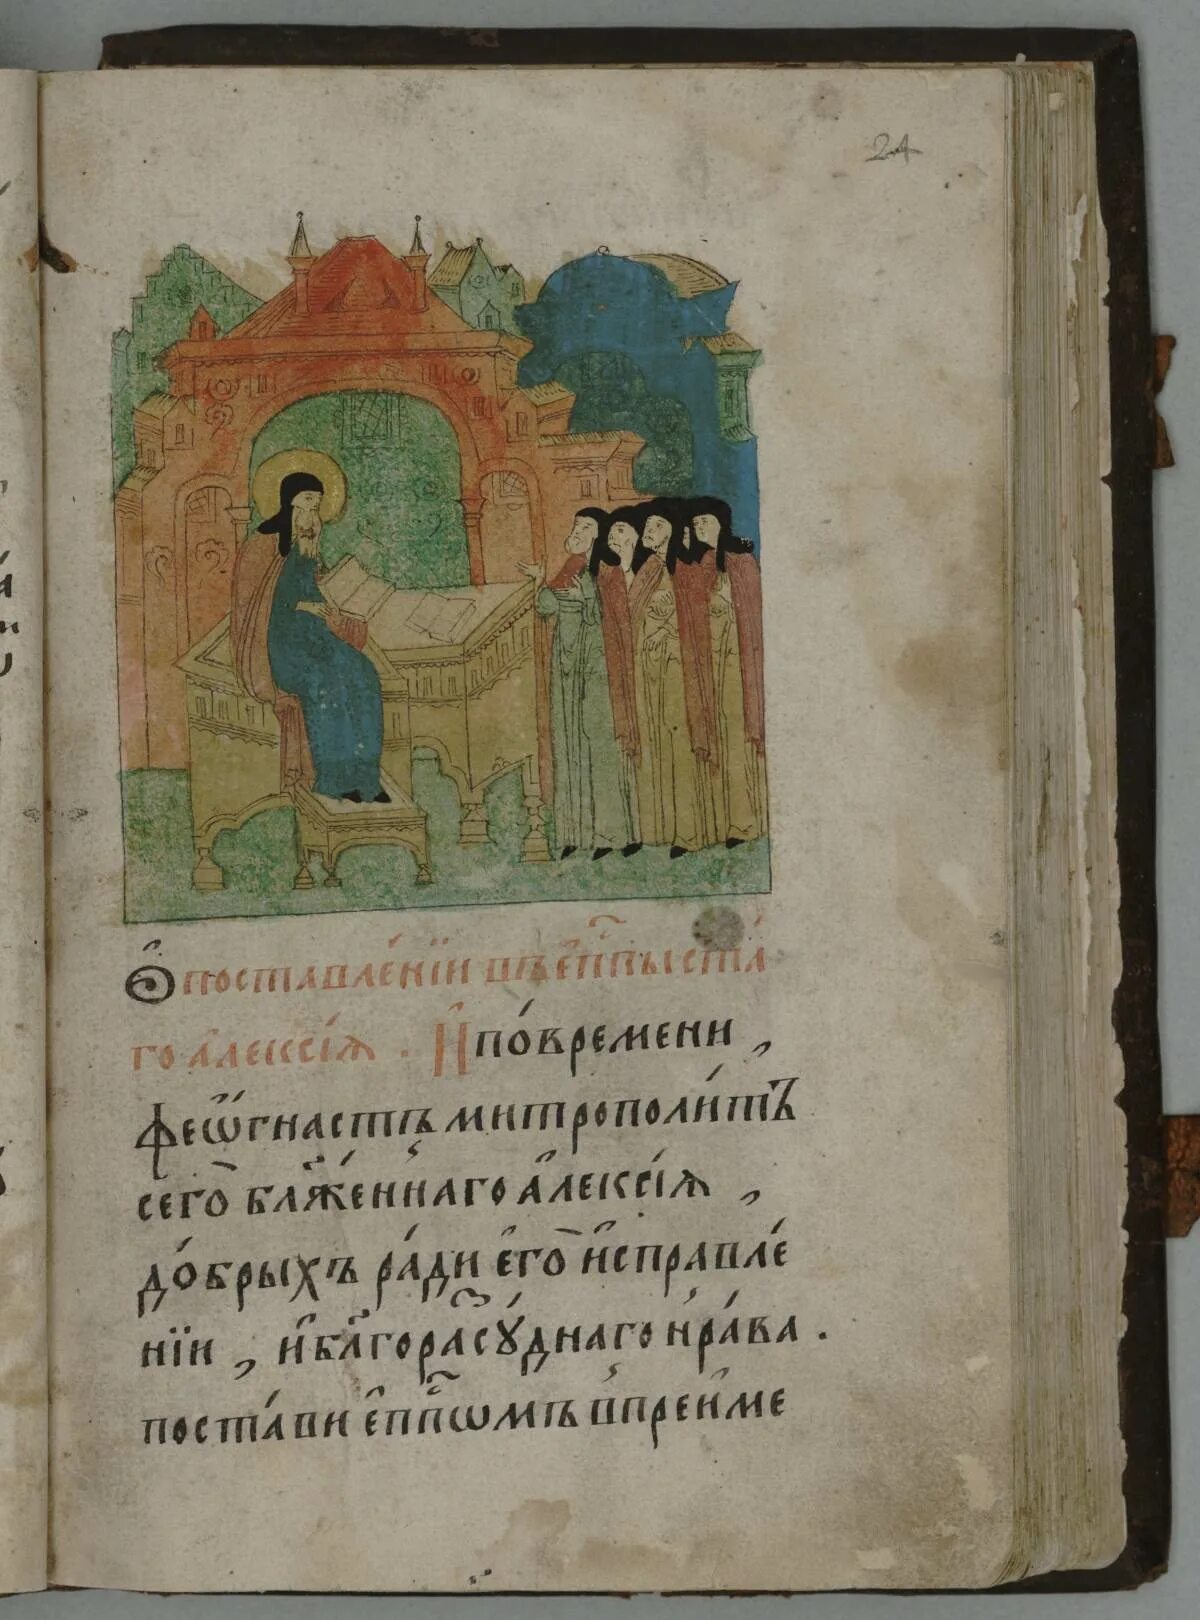 24
Ѡ поставле́нїи въ е҆пп҃ы ст҃а́
го а҆леѯі́а . И҆ по́ времени ,
феѡ҆гнастъ митрополи́тъ
сего̀ бл҃же́ннаго а҆леѯі́ѧ ,
до́брыхъ ра́ди є҆го̀ и҆справле́
нїи , и҆ бл҃горасу́днаго нра́ва .
поста́ви є҆пп҃ѡмъ въ преиме